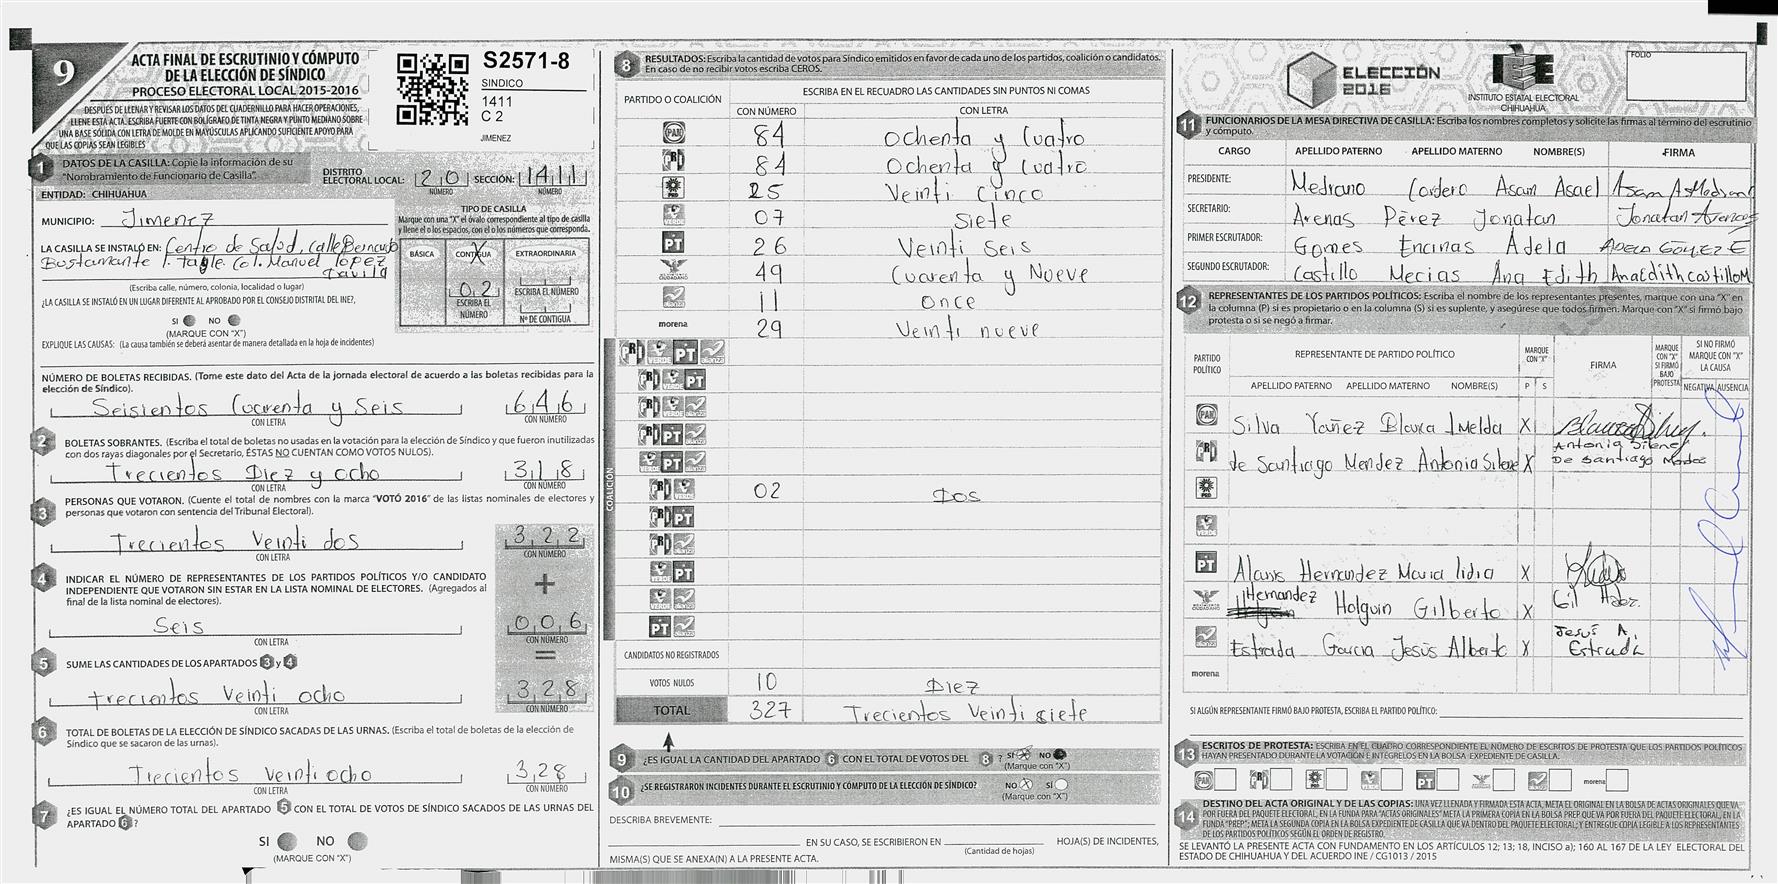 9
ACTA FINAL DE ESCRUTINIO Y CÓMPUTO
DE LA ELECCIÓN DE SÍNDICO
PROCESO ELECTORAL LOCAL 2015-2016
DESPUÉS DE LLENAR Y REVISAR LOS DATOS DEL CUADERNILLO PARA HACER OPERACIONES,
LLENE ESTA ACTA. ESCRIBA FUERTE CON BOLÍGRAFO DE TINTA NEGRA Y PUNTO MEDIANO SOBRE
UNA BASE SÓLIDA CON LETRA DE MOLDE EN MAYÚSCULAS APLICANDO SUFICIENTE APOYO PARA
QUE LAS COPIAS SEAN LEGIBLES
S2571-8
SINDICO
1411
C 2
JIMENEZ
1 DATOS DE LA CASILLA: Copie la información de su
"Nombramiento de Funcionario de Casilla".
DISTRITO
ELECTORAL LOCAL: 20 SECCIÓN: 1411
NÚMERO NÚMERO
ENTIDAD: CHIHUAHUA
MUNICIPIO: Jimenez
LA CASILLA SE INSTALÓ EN: Centro de Salud, calle Bernardo
Bustamante I. Tagle. Col. Manuel lopez
Davila
(Escriba calle, número, colonia, localidad o lugar)
¿LA CASILLA SE INSTALÓ EN UN LUGAR DIFERENTE AL APROBADO POR EL CONSEJO DISTRITAL DEL INE?,
SI NO
(MARQUE CON "X")
EXPLIQUE LAS CAUSAS: (La causa también se deberá asentar de manera detallada en la hoja de incidentes)
TIPO DE CASILLA
Marque con una "X" el óvalo correspondiente al tipo de casilla
y llene el o los espacios, con el o los números que corresponda.
BÁSICA CONTIGUA EXTRAORDINARIA
X
02
ESCRIBA EL NÚMERO
ESCRIBA EL NÚMERO
Nº DE CONTIGUA
NÚMERO DE BOLETAS RECIBIDAS. (Tome este dato del Acta de la jornada electoral de acuerdo a las boletas recibidas para la
elección de Síndico).
Seisientos Cuarenta y Seis 646
CON LETRA CON NÚMERO
2 BOLETAS SOBRANTES. (Escriba el total de boletas no usadas en la votación para la elección de Síndico y que fueron inutilizadas
con dos rayas diagonales por el Secretario, ÉSTAS NO CUENTAN COMO VOTOS NULOS).
Trecientos Diez y ocho 318
CON LETRA CON NÚMERO
3 PERSONAS QUE VOTARON. (Cuente el total de nombres con la marca "VOTÓ 2016" de las listas nominales de electores y
personas que votaron con sentencia del Tribunal Electoral).
Trecientos Veinti dos 322
CON LETRA CON NÚMERO
4 INDICAR EL NÚMERO DE REPRESENTANTES DE LOS PARTIDOS POLÍTICOS Y/O CANDIDATO
INDEPENDIENTE QUE VOTARON SIN ESTAR EN LA LISTA NOMINAL DE ELECTORES. (Agregados al
final de la lista nominal de electores).
+
Seis 006
CON LETRA CON NÚMERO
=
5 SUME LAS CANTIDADES DE LOS APARTADOS 3 y 4
trecientos veinti ocho 328
CON LETRA CON NÚMERO
6 TOTAL DE BOLETAS DE LA ELECCIÓN DE SÍNDICO SACADAS DE LAS URNAS. (Escriba el total de boletas de la elección de
Síndico que se sacaron de las urnas).
Trecientos Veinti ocho 328
CON LETRA CON NÚMERO
7 ¿ES IGUAL EL NÚMERO TOTAL DEL APARTADO 5 CON EL TOTAL DE VOTOS DE SÍNDICO SACADOS DE LAS URNAS DEL
APARTADO 6?
SI NO
(MARQUE CON "X")
8 RESULTADOS: Escriba la cantidad de votos para Síndico emitidos en favor de cada uno de los partidos, coalición o candidatos.
En caso de no recibir votos escriba CEROS.
PARTIDO O COALICIÓN
ESCRIBA EN EL RECUADRO LAS CANTIDADES SIN PUNTOS NI COMAS
CON NÚMERO CON LETRA
PAN 84 Ochenta y Cuatro
PRI 84 Ochenta y Cuatro
PRD 25 Veinti Cinco
VERDE 07 Siete
PT 26 Veinti seis
MOVIMIENTO CIUDADANO 49 Cuarenta y Nueve
alianza 11 once
morena 29 Veinti nueve
COALICIÓN
PRI VERDE PT alianza
PRI VERDE PT
PRI VERDE alianza
PRI PT alianza
VERDE PT alianza
PRI VERDE 02 Dos
PRI PT
PRI alianza
VERDE PT
VERDE alianza
PT alianza
CANDIDATOS NO REGISTRADOS
VOTOS NULOS 10 Diez
TOTAL 327 Trecientos Veinti siete
9 ¿ES IGUAL LA CANTIDAD DEL APARTADO 6 CON EL TOTAL DE VOTOS DEL 8 ? SI NO
(Marque con "X")
10 ¿SE REGISTRARON INCIDENTES DURANTE EL ESCRUTINIO Y CÓMPUTO DE LA ELECCIÓN DE SÍNDICO? NO X SI
(Marque con "X")
DESCRIBA BREVEMENTE:
EN SU CASO, SE ESCRIBIERON EN HOJA(S) DE INCIDENTES,
(Cantidad de hojas)
MISMA(S) QUE SE ANEXA(N) A LA PRESENTE ACTA.
ELECCIÓN
2016
IEE
INSTITUTO ESTATAL ELECTORAL
CHIHUAHUA
FOLIO
11 FUNCIONARIOS DE LA MESA DIRECTIVA DE CASILLA: Escriba los nombres completos y solicite las firmas al término del escrutinio
y cómputo.
CARGO APELLIDO PATERNO APELLIDO MATERNO NOMBRE(S) FIRMA
PRESIDENTE: Medrano Cordero Asam Asael
SECRETARIO: Arenas Pérez Jonatan Jonatan Arenas
PRIMER ESCRUTADOR: Gomes Encinas Adela ADELA GOMEZ E
SEGUNDO ESCRUTADOR: Castillo Mecias Ana Edith AnaEdithcastilloM
12 REPRESENTANTES DE LOS PARTIDOS POLÍTICOS: Escriba el nombre de los representantes presentes, marque con una "X" en
la columna (P) si es propietario o en la columna (S) si es suplente, y asegúrese que todos firmen. Marque con "X" si firmó bajo
protesta o si se negó a firmar.
PARTIDO POLÍTICO
REPRESENTANTE DE PARTIDO POLÍTICO
MARQUE CON "X"
FIRMA
MARQUE CON "X" SI FIRMÓ BAJO PROTESTA
SI NO FIRMÓ MARQUE CON "X" LA CAUSA
APELLIDO PATERNO APELLIDO MATERNO NOMBRE(S) P S NEGATIVA AUSENCIA
PAN Silva Yañez Blanca Imelda X
PRI de Santiago Mendez Antonia Silene X Antonia Silene
De Santiago
PRD
VERDE
PT Alanis Hernandez Maria lidia X
Hernandez Holguin Gilberto X Gil Hdez.
alianza Estrada Garcia Jesús Alberto X Jesús A.
Estrada
morena
SI ALGÚN REPRESENTANTE FIRMÓ BAJO PROTESTA, ESCRIBA EL PARTIDO POLÍTICO:
13 ESCRITOS DE PROTESTA: ESCRIBA EN EL CUADRO CORRESPONDIENTE EL NÚMERO DE ESCRITOS DE PROTESTA QUE LOS PARTIDOS POLÍTICOS
HAYAN PRESENTADO DURANTE LA VOTACIÓN E INTÉGRELOS EN LA BOLSA EXPEDIENTE DE CASILLA.
PAN PRI PRD VERDE PT alianza morena
14 DESTINO DEL ACTA ORIGINAL Y DE LAS COPIAS: UNA VEZ LLENADA Y FIRMADA ESTA ACTA, META EL ORIGINAL EN LA BOLSA DE ACTAS ORIGINALES QUE VA
POR FUERA DEL PAQUETE ELECTORAL, EN LA FUNDA PARA "ACTAS ORIGINALES" META LA PRIMERA COPIA EN LA BOLSA PREP QUE VA POR FUERA DEL PAQUETE ELECTORAL, EN LA
FUNDA "PREP"; META LA SEGUNDA COPIA EN LA BOLSA EXPEDIENTE DE CASILLA QUE VA DENTRO DEL PAQUETE ELECTORAL; Y ENTREGUE COPIA LEGIBLE A LOS REPRESENTANTES
DE LOS PARTIDOS POLÍTICOS SEGÚN EL ORDEN DE REGISTRO.
SE LEVANTÓ LA PRESENTE ACTA CON FUNDAMENTO EN LOS ARTÍCULOS 12; 13; 18, INCISO a); 160 AL 167 DE LA LEY ELECTORAL DEL
ESTADO DE CHIHUAHUA Y DEL ACUERDO INE / CG1013 / 2015